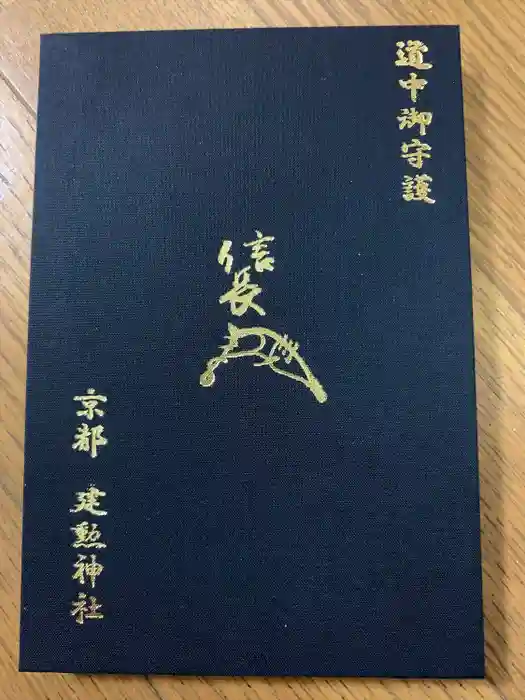 道中御守護
信長
京都 建勲神社